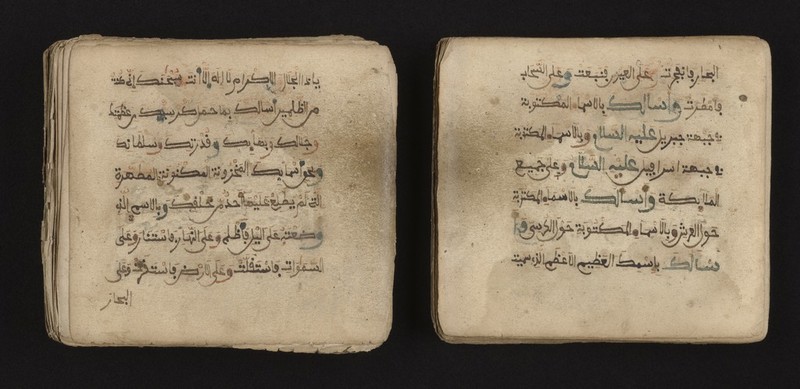 ياذا الجلال والإكرام لا إله إلا أنت سبحنك إني كنت
من الظلمين أسألك بما حمل كرسيك من عظمتك
وجلالك وبهايك وقدرتك وسلطانك
وبحق أسمايك المخزونة المكنونة المطهرة
التي لم يطلع عليها أحد من خلقك وبالاسم الذي
وضعته على الليل فأظلم وعلى النهار فاستنار وعلى
السموات فاستقلت وعلى الأرض فاستقرت وعلى
البحار
البحار فانفجرت وعلى العيون فنبعت وعلى السحاب
فأمطرت وأسألك بالأسماء المكتوبة
في جبهة جبريل عليه السلام وبالأسماء المكتوبة
في جبهة اسرافيل عليه السلام وعلى جميع
الملايكة وأسألك بالأسماء المكتوبة
حول العرش وبالأسماء المكتوبة حول الكرسي وأ
سألك باسمك العظيم الأعظم الذي سميت